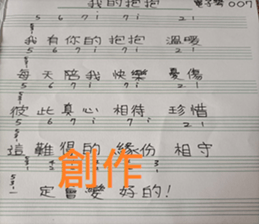 我的抱抱 電子琴 007
5 6 7 i 7 i 2 i
我有你的抱抱 溫暖
5 6 7 i 7 i 2 i
每天陪我快樂 憂傷
5 6 7 i 7 i 2 i
彼此真心相待 珍惜
5 6 7 i i 7 2 i
這難得的緣份 相守
創作
一定會變好的!